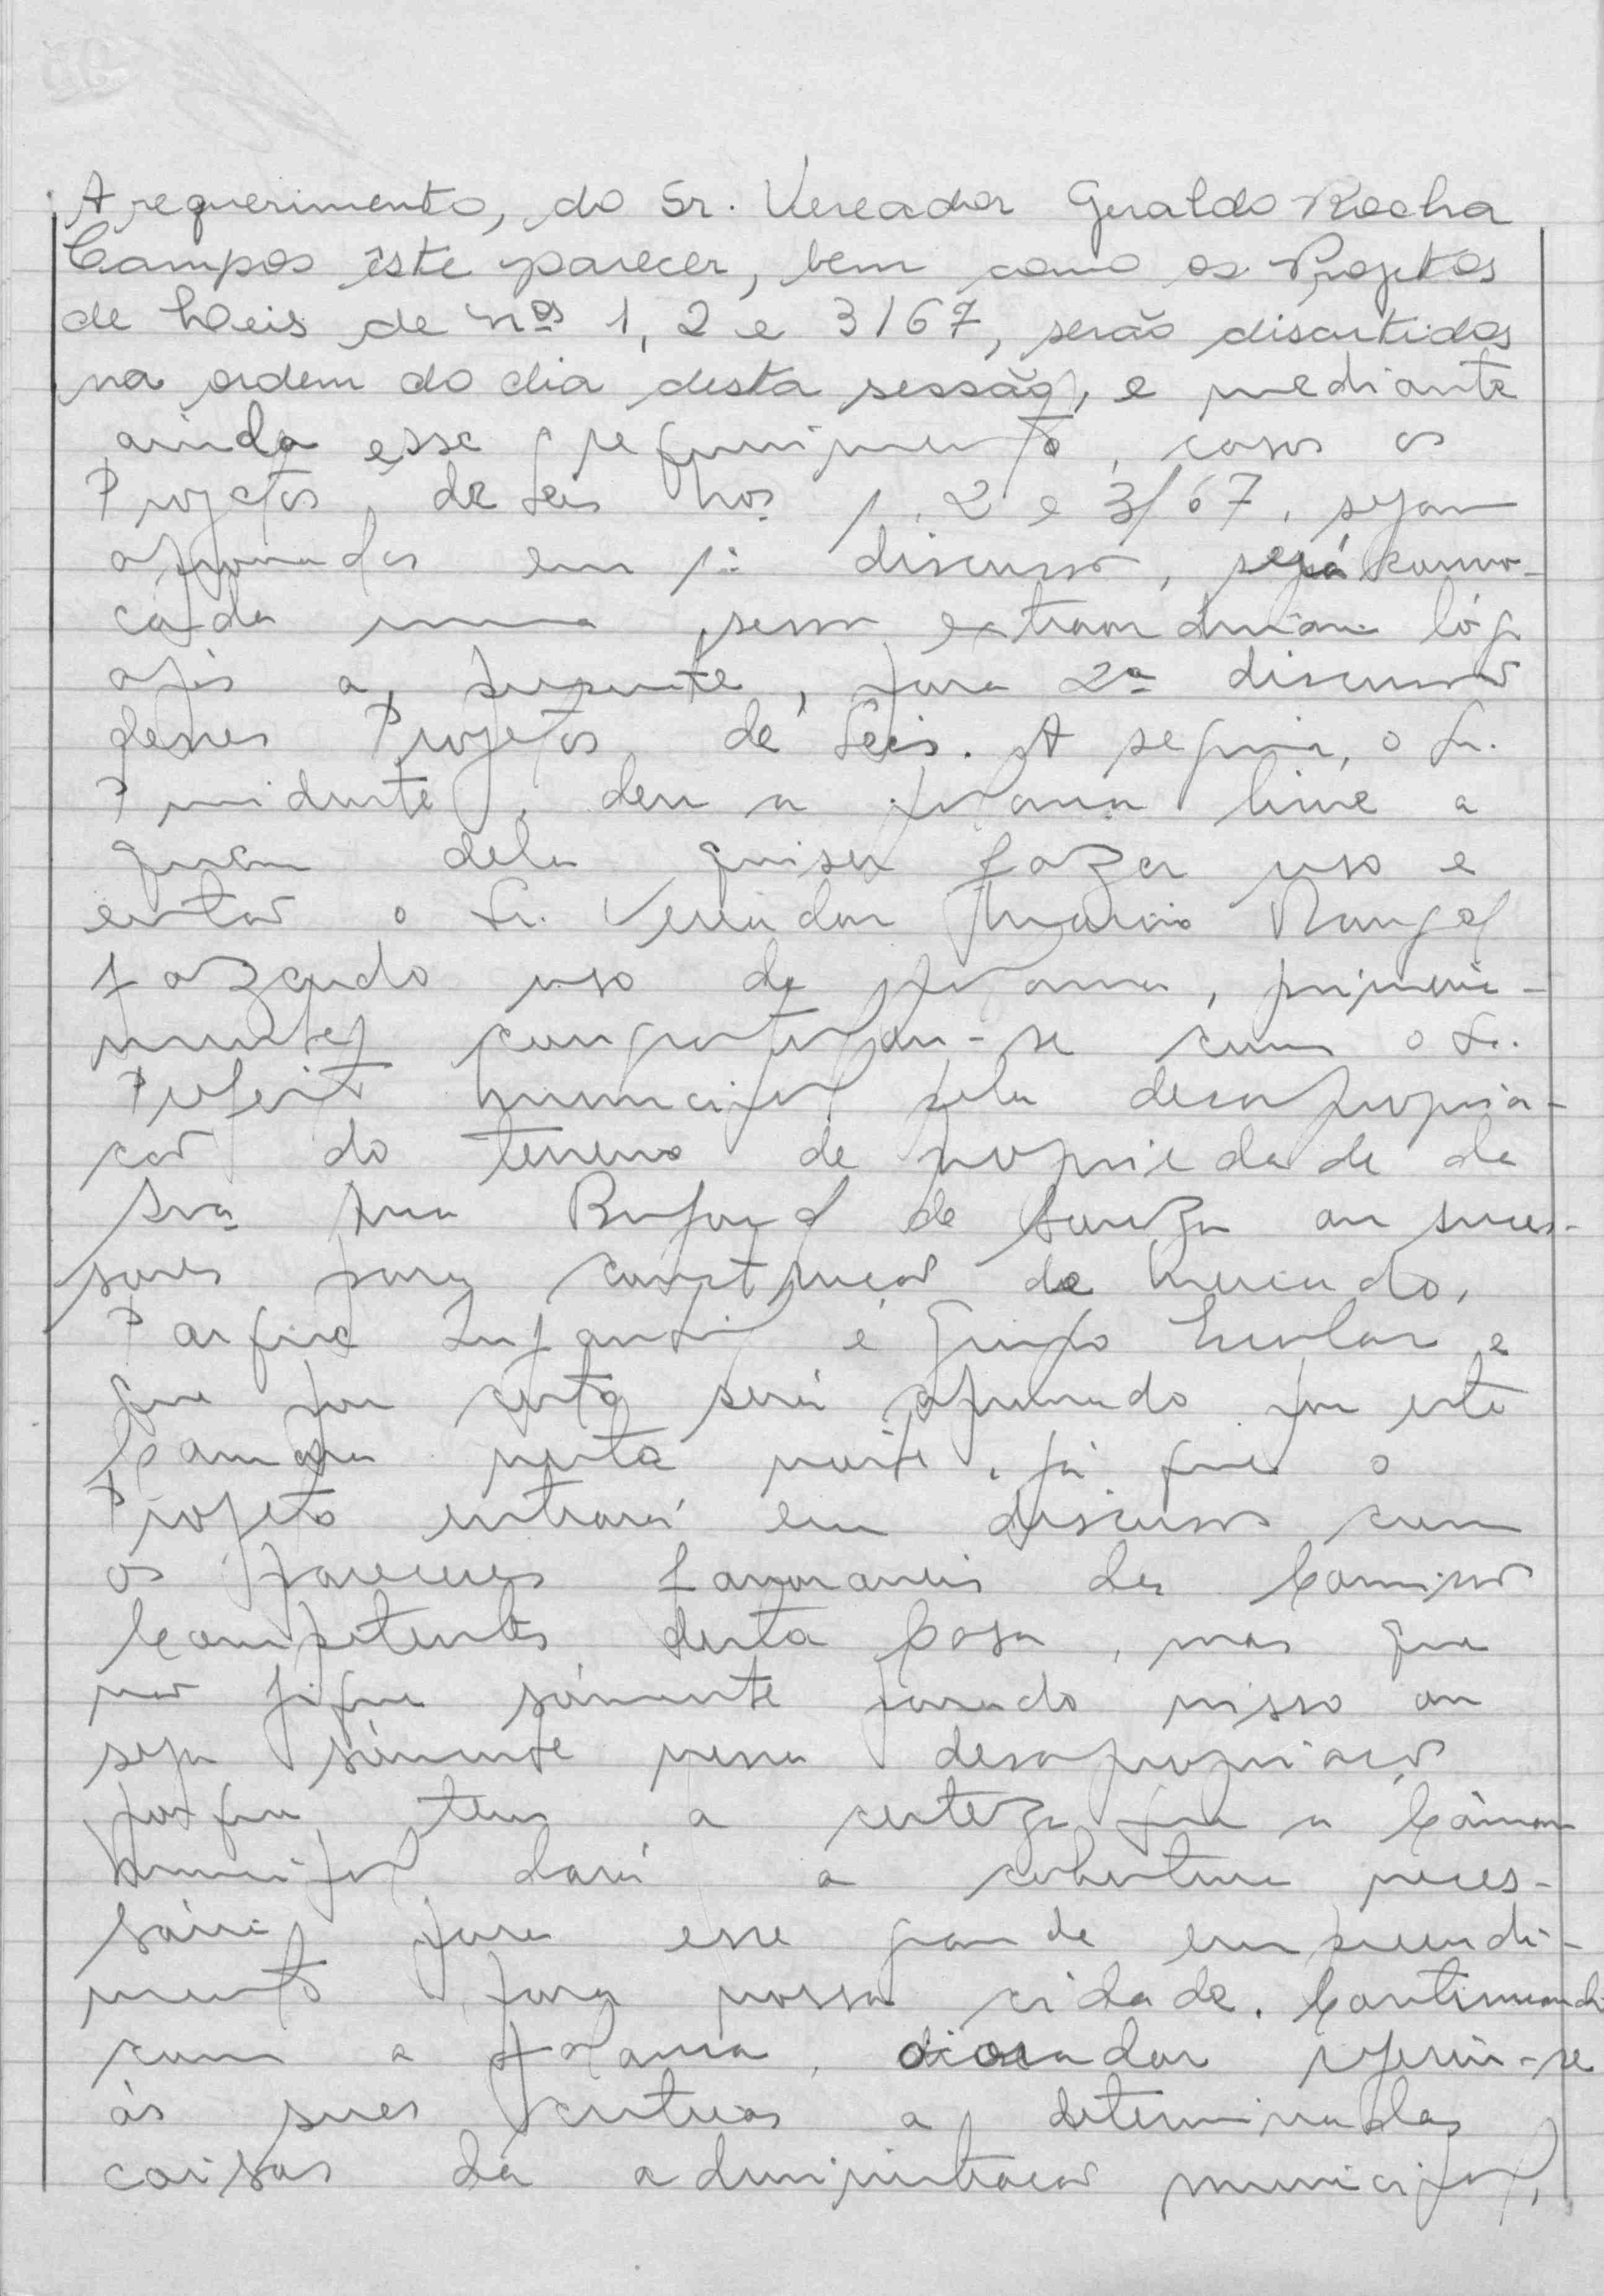 A requerimento, do Sr. Vereador Geraldo Rocha
Campos êste parecer, bem como os Projetos
de Leis de nºs 1, 2 e 3/67, serão discutidos
na ordem do dia desta sessão, e mediante
ainda esse requerimento, casos os
Projetos de Leis nos 1, 2 e 3/67, sejam
aprovados em 1ª discussão, será convo-
cada uma sessão extraordinária lógo
após a presente, para 2ª discussão
desses Projetos de Leis. A seguir, o Sr.
Presidente, deu a palavra livre a
quem dela quiser fazer uso e
então o Sr. Vereador Rangel
fazendo uso da palavra, primeira-
mente congratulou-se com o Sr.
Prefeito Municipal pela desapropria-
ção do terreno de propriedade da
Sra de Souza ou suces-
sores para construção de Mercado,
Parque Infantil e Grupo Escolar e
que por certo será aprovado por esta
Camara nesta noite, já que o
Projeto entrará em discussão com
os pareceres favoraveis da Comissão
Competentes desta Casa, mas que
não fique sómente parado nisso ou
seja sómente nessa desapropriação
porque tem a certeza que a Câmara
Municipal dará a cobertura neces-
sária para esse grande empreendi-
mento para nossa cidade. Continuando
com a palavra, o orador referiu-se
às suas criticas a determinadas
coisas da administração municipal,